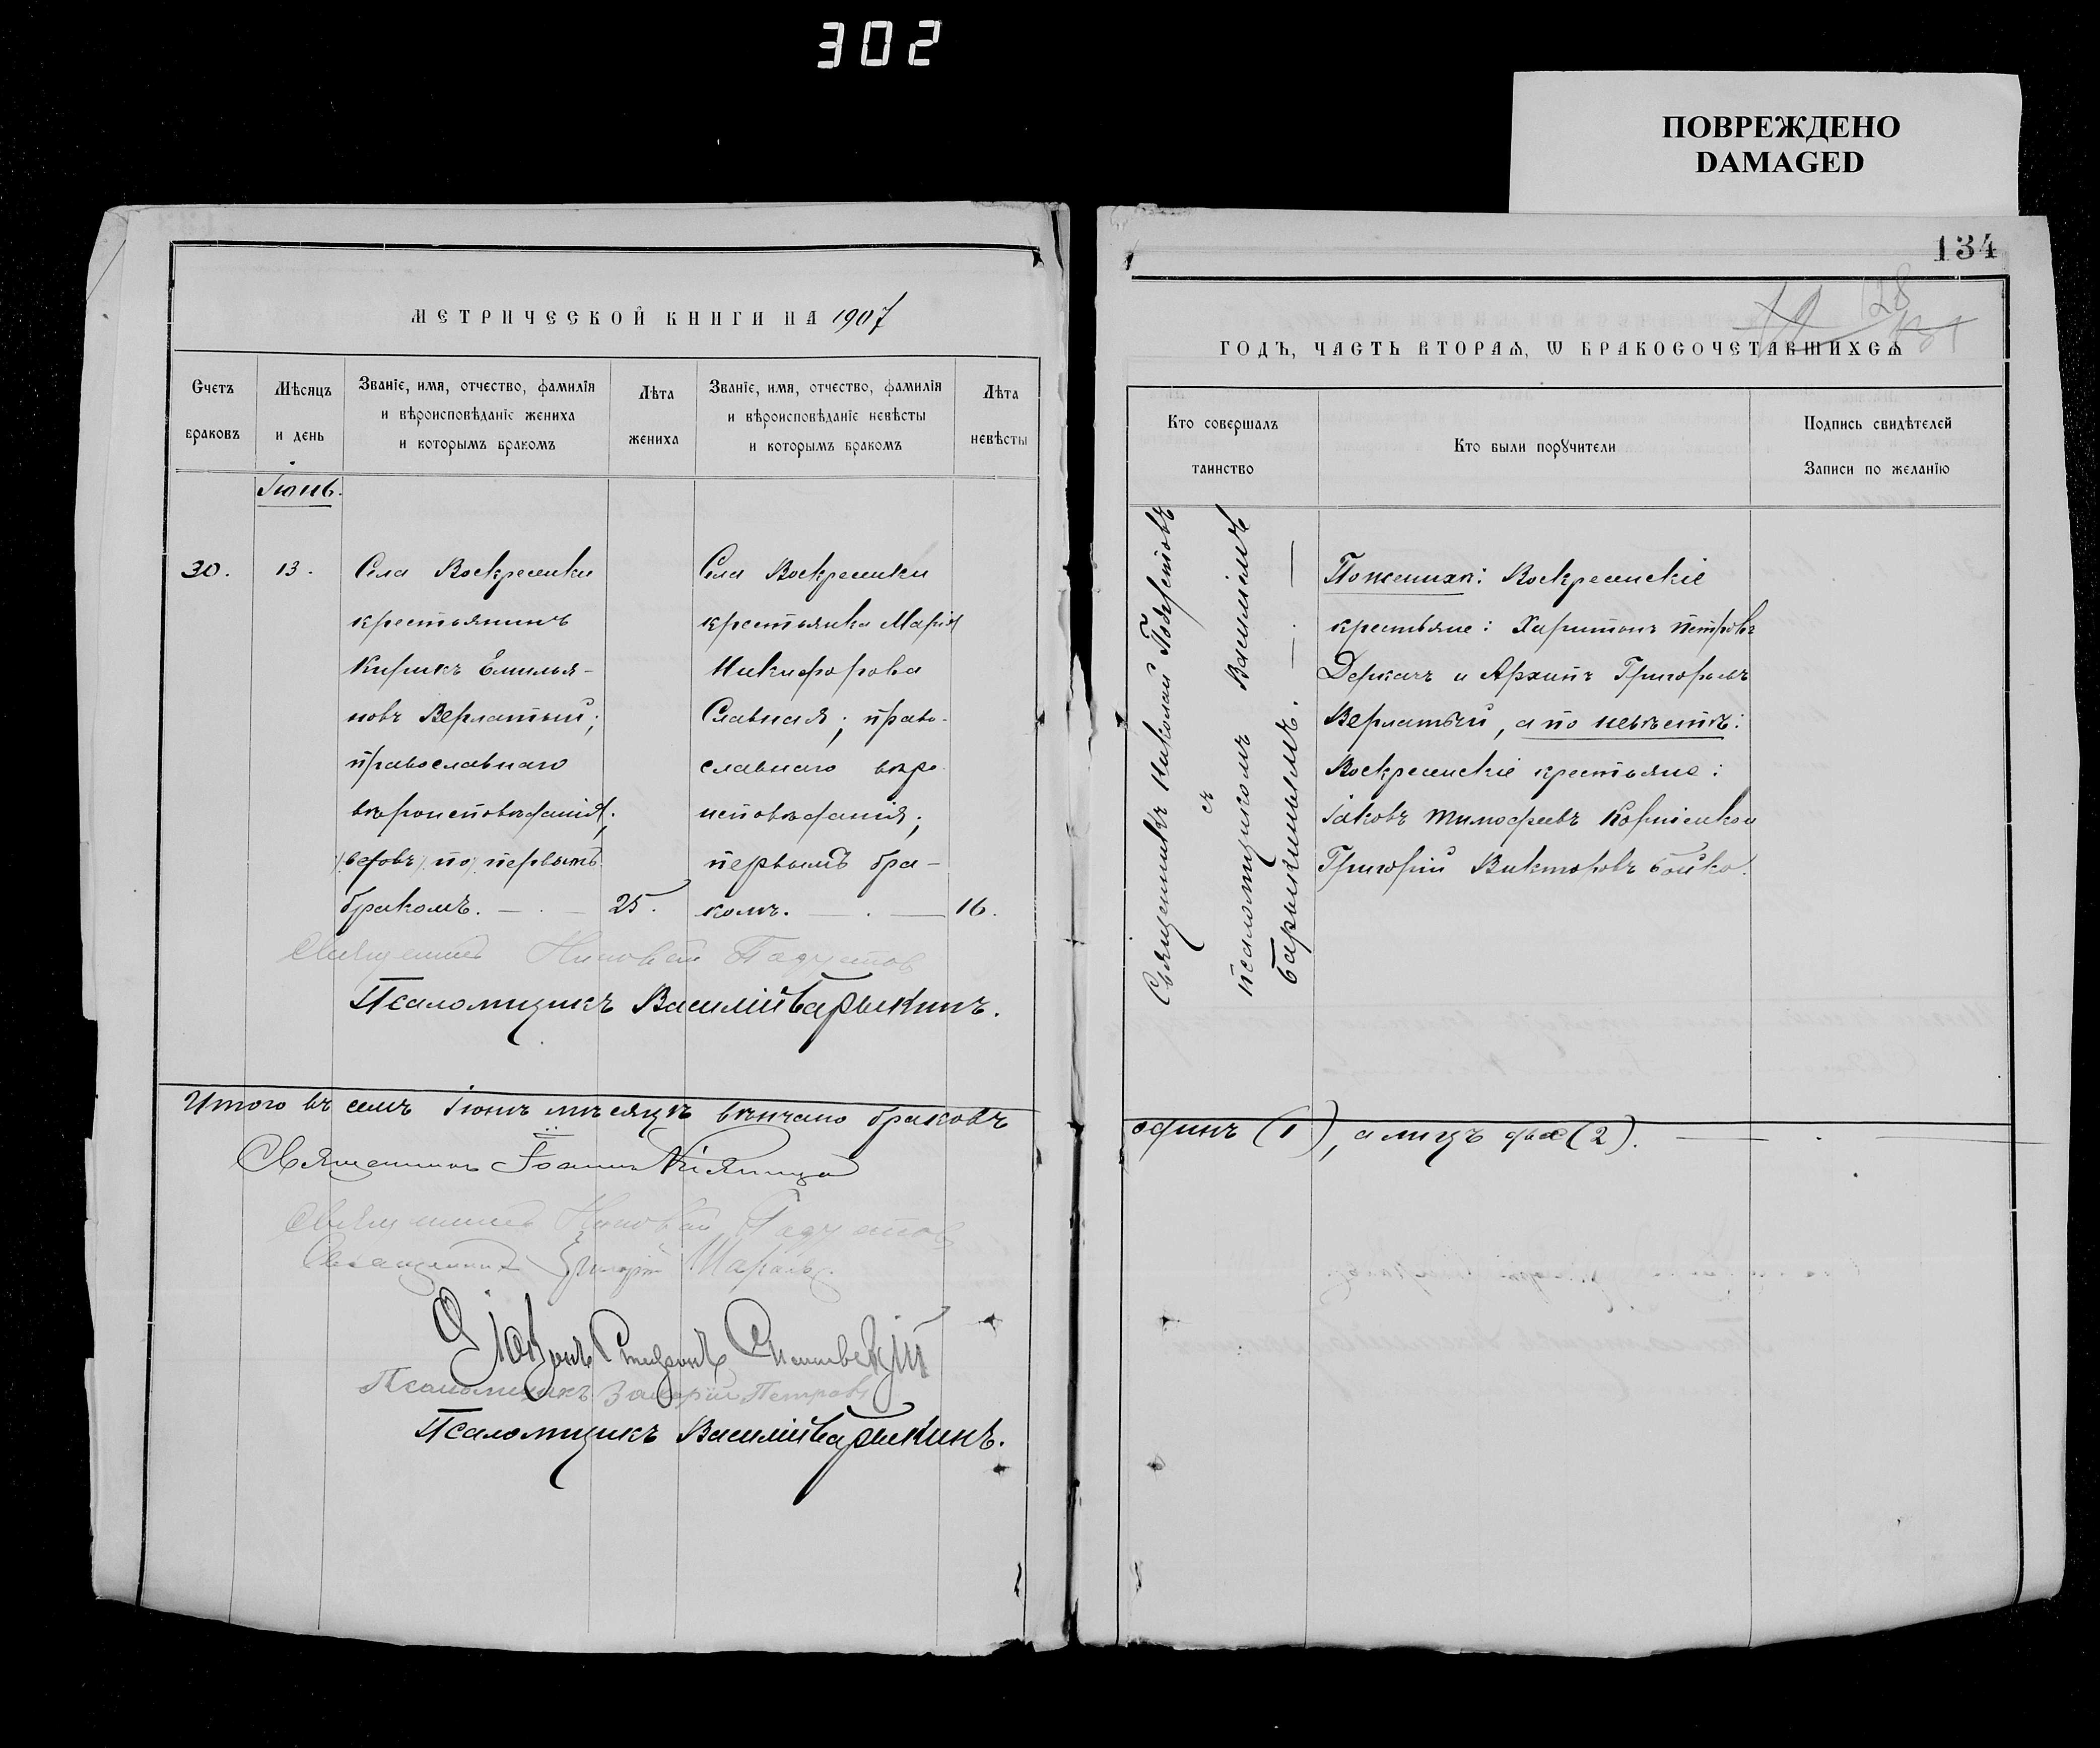 302
ПОВРЕЖДЕНО
DAMAGED
134
128
МЕТРИЧЕСКОЙ КНИГИ НА 1907
ГОДЪ, ЧАСТЬ ВТОРАѦ, Ѡ БРАКОСОЧЕТАВШИХСѦ
Счетъ браковъ
Мѣсяцъ и день
Званіе, имя, отчество, фамилія и вѣроисповѣданіе жениха и которымъ бракомъ
Лѣта жениха
Званіе, имя, отчество, фамилія и вѣроисповѣданіе невѣсты и которымъ бракомъ
Лѣта невѣсты
Кто совершалъ таинство
Кто были порꙋчители
Подпись свидѣтелей Записи по желанію
Іюнь.
30.
13.
Села Воскресенки
крестьянинъ
Кирикъ Емилья-
новъ Верлатый;
православнаго
вѣроисповѣданія;
вдовъ по первымъ
бракомъ.
25.
Села Воскресенки
крестьянка Марія
Никифорова
Славная; право-
славнаго вѣро-
исповѣданія;
первымъ бра-
комъ.
16.
Священникъ Николай
Псаломщикъ Василій Барыкинъ.
Священникъ Николай
съ
псаломщикомъ Василіемъ
Барыкинымъ.
По женихѣ: Воскресенскіе
крестьяне: Харитонъ Петровъ
Деркачъ и Архипъ Григорьевъ
Верлатый, а по невѣстѣ:
Воскресенскіе крестьяне:
Іаковъ Тимофеевъ Корніенко и
Григорій Викторовъ Бойко.
Итого въ семъ Іюнѣ мѣсяцѣ вѣнчано браковъ
одинъ (1), а лицъ два (2).
Священникъ Іоаннъ
Священникъ Николай
Священникъ Григорій
Псаломщикъ Петровъ
Псаломщикъ Василій Барыкинъ.